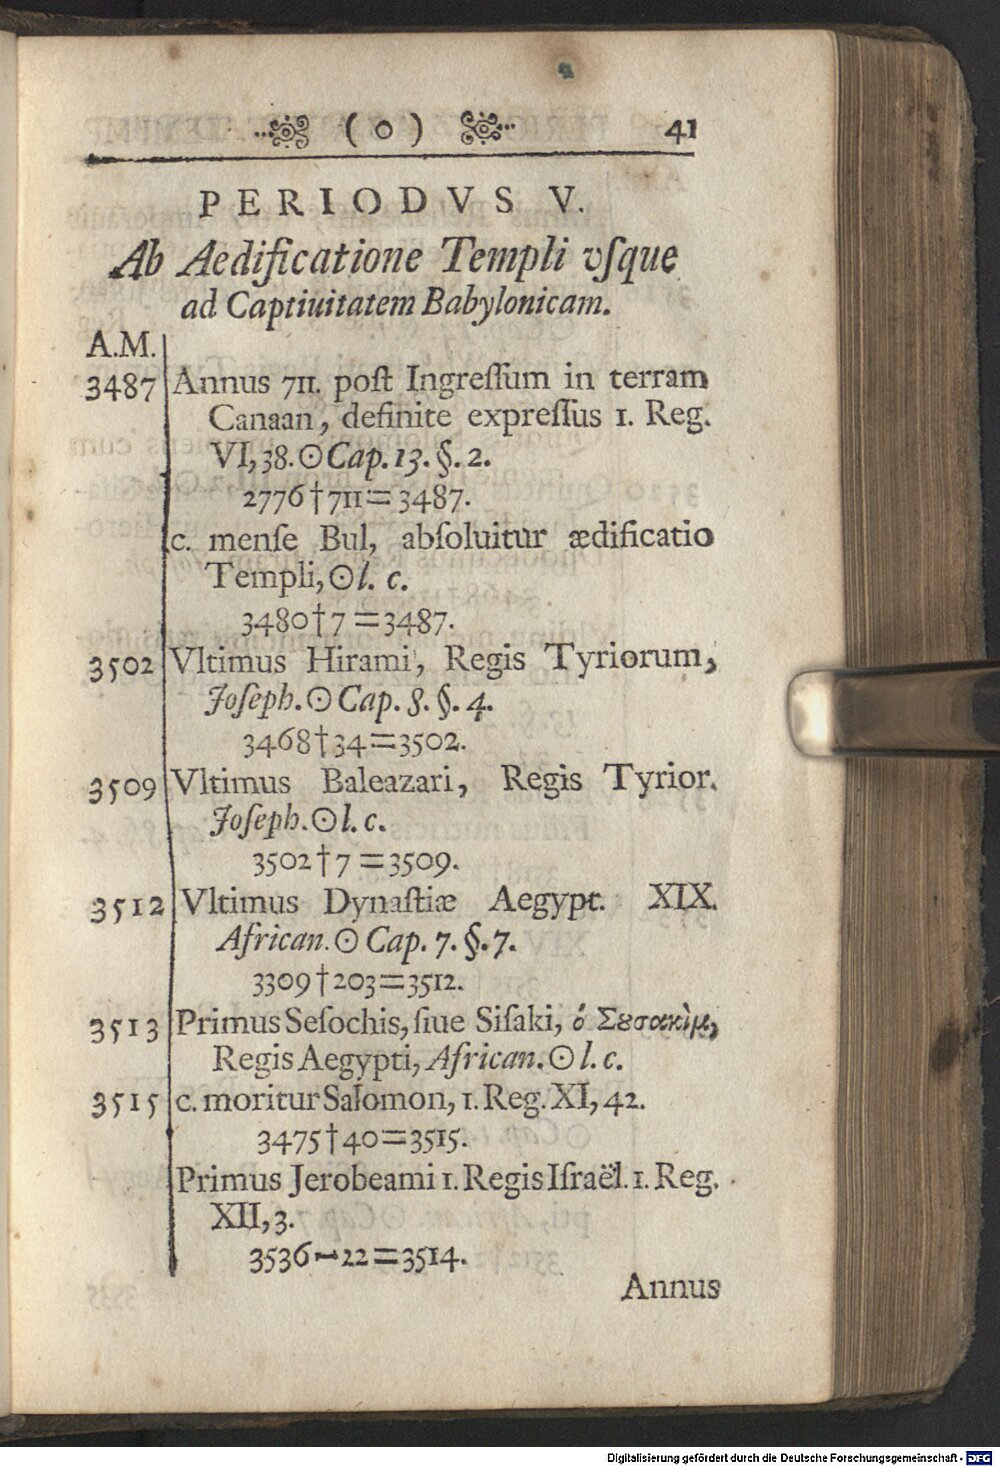 ( o ) 41
PERIODVS V.
Ab Aedificatione Templi vſque
ad Captiuitatem Babylonicam.
A.M.
3487 Annus 711. poſt Ingreſſum in terram
Canaan, definite expreſſus 1. Reg.
VI, 38. ☉ Cap. 13. §. 2.
2776 † 711 = 3487.
c. menſe Bul, abſoluitur ædificatio
Templi, ☉ l. c.
3480 † 7 = 3487.
3502 Vltimus Hirami, Regis Tyriorum,
Joſeph. ☉ Cap. 8. §. 4.
3468 † 34 = 3502.
3509 Vltimus Baleazari, Regis Tyrior.
Joſeph. ☉ l. c.
3502 † 7 = 3509.
3512 Vltimus Dynaſtiæ Aegypt. XIX.
African. ☉ Cap. 7. §. 7.
3309 † 203 = 3512.
3513 Primus Seſochis, ſiue Siſaki, ὁ Σȣσακὶμ,
Regis Aegypti, African. ☉ l. c.
3515 c. moritur Salomon, 1. Reg. XI, 42.
3475 † 40 = 3515.
Primus Jerobeami 1. Regis Iſraël. 1. Reg.
XII, 3.
3536 – 22 = 3514.
Annus
Digitalisierung gefördert durch die Deutsche Forschungsgemeinschaft - DFG